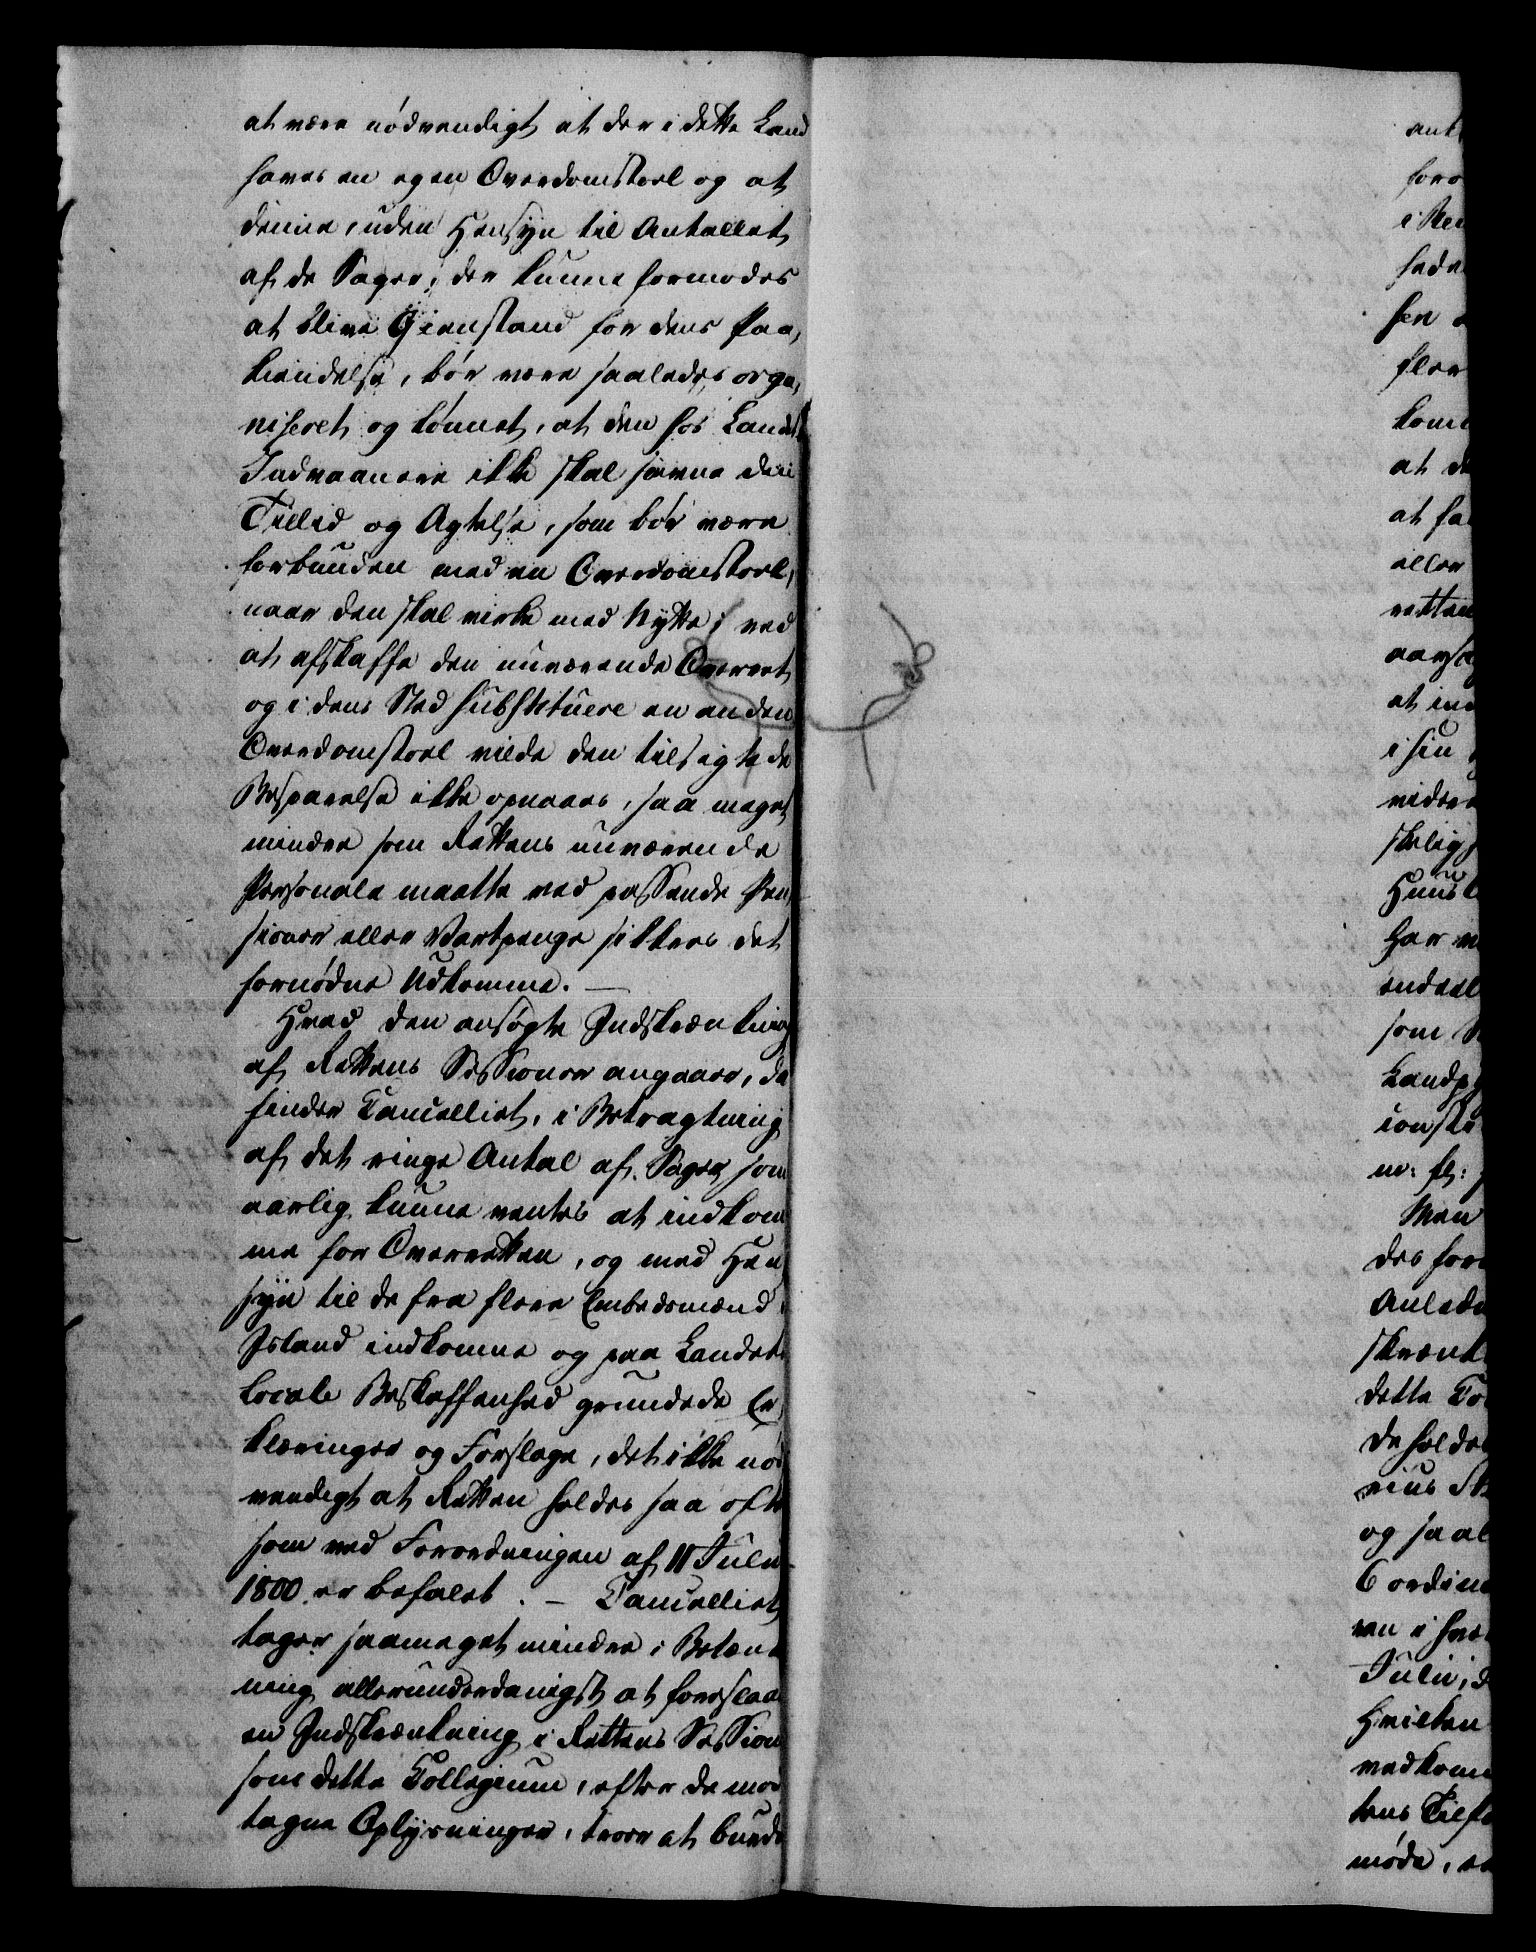 at være nödvendigt at der i dette Land
haves en egen Overdomstoel og at
denne, uden Hensyn til Antallet
af de Sager, der kunne formodes
at blive Gienstand for dens Paa,
kiendelse, bör være saaledes orga,
niseret og lönnet, at den hos Landets
Indvaanere ikke skal savne den
Tillid og Agtelse, som bör være
forbunden med en Overdomstoel,
naar den skal virke med Nytte; ved
at afskaffe den nuværende Overret
og i dens Sted substituere en anden
Overdomstoel vilde den tilsigtede
Besparelse ikke opnaaes, saa meget
mindre som Rettens nuværende
Personale maatte ved passende Pen
sioner eller Vartpenge sikkres det
fornödne Udkomme. —
Hvad den ansögte Indskrænkning
af Rettens Sessioner angaaer, da
finder Cancelliet, i Betragtning
af det ringe Antal af Sager som
aarlig kunne ventes at indkom
me for Overretten, og med Hen
syn til de fra flere Embedsmænd i
Island indkomne og paa Landets
locale Beskaffenhed grundede Er
klæringer og Forslage, det ikke nöd
vendigt at Retten holdes saa ofte
som ved Forordningen af 11 Julii
1800 er befalet. — Cancelliet
tager saameget mindre i Betænk
ning allerunderdanigst at foreslaae
en Indskrænkning i Rettens Session
som dette Collegium, efter de mod
tagne Oplysninger, troer at burde
foro
i Ste
sen
fler
at
at
eller
at ind
i sin
vider
skelig
har
som
Landp
m: fl:
Men
des for
Anled
skrænk
dette Co
de holde
og saal
6 ordin
Julii, d
Hvilken
vedkom
tens Tilf
möde,